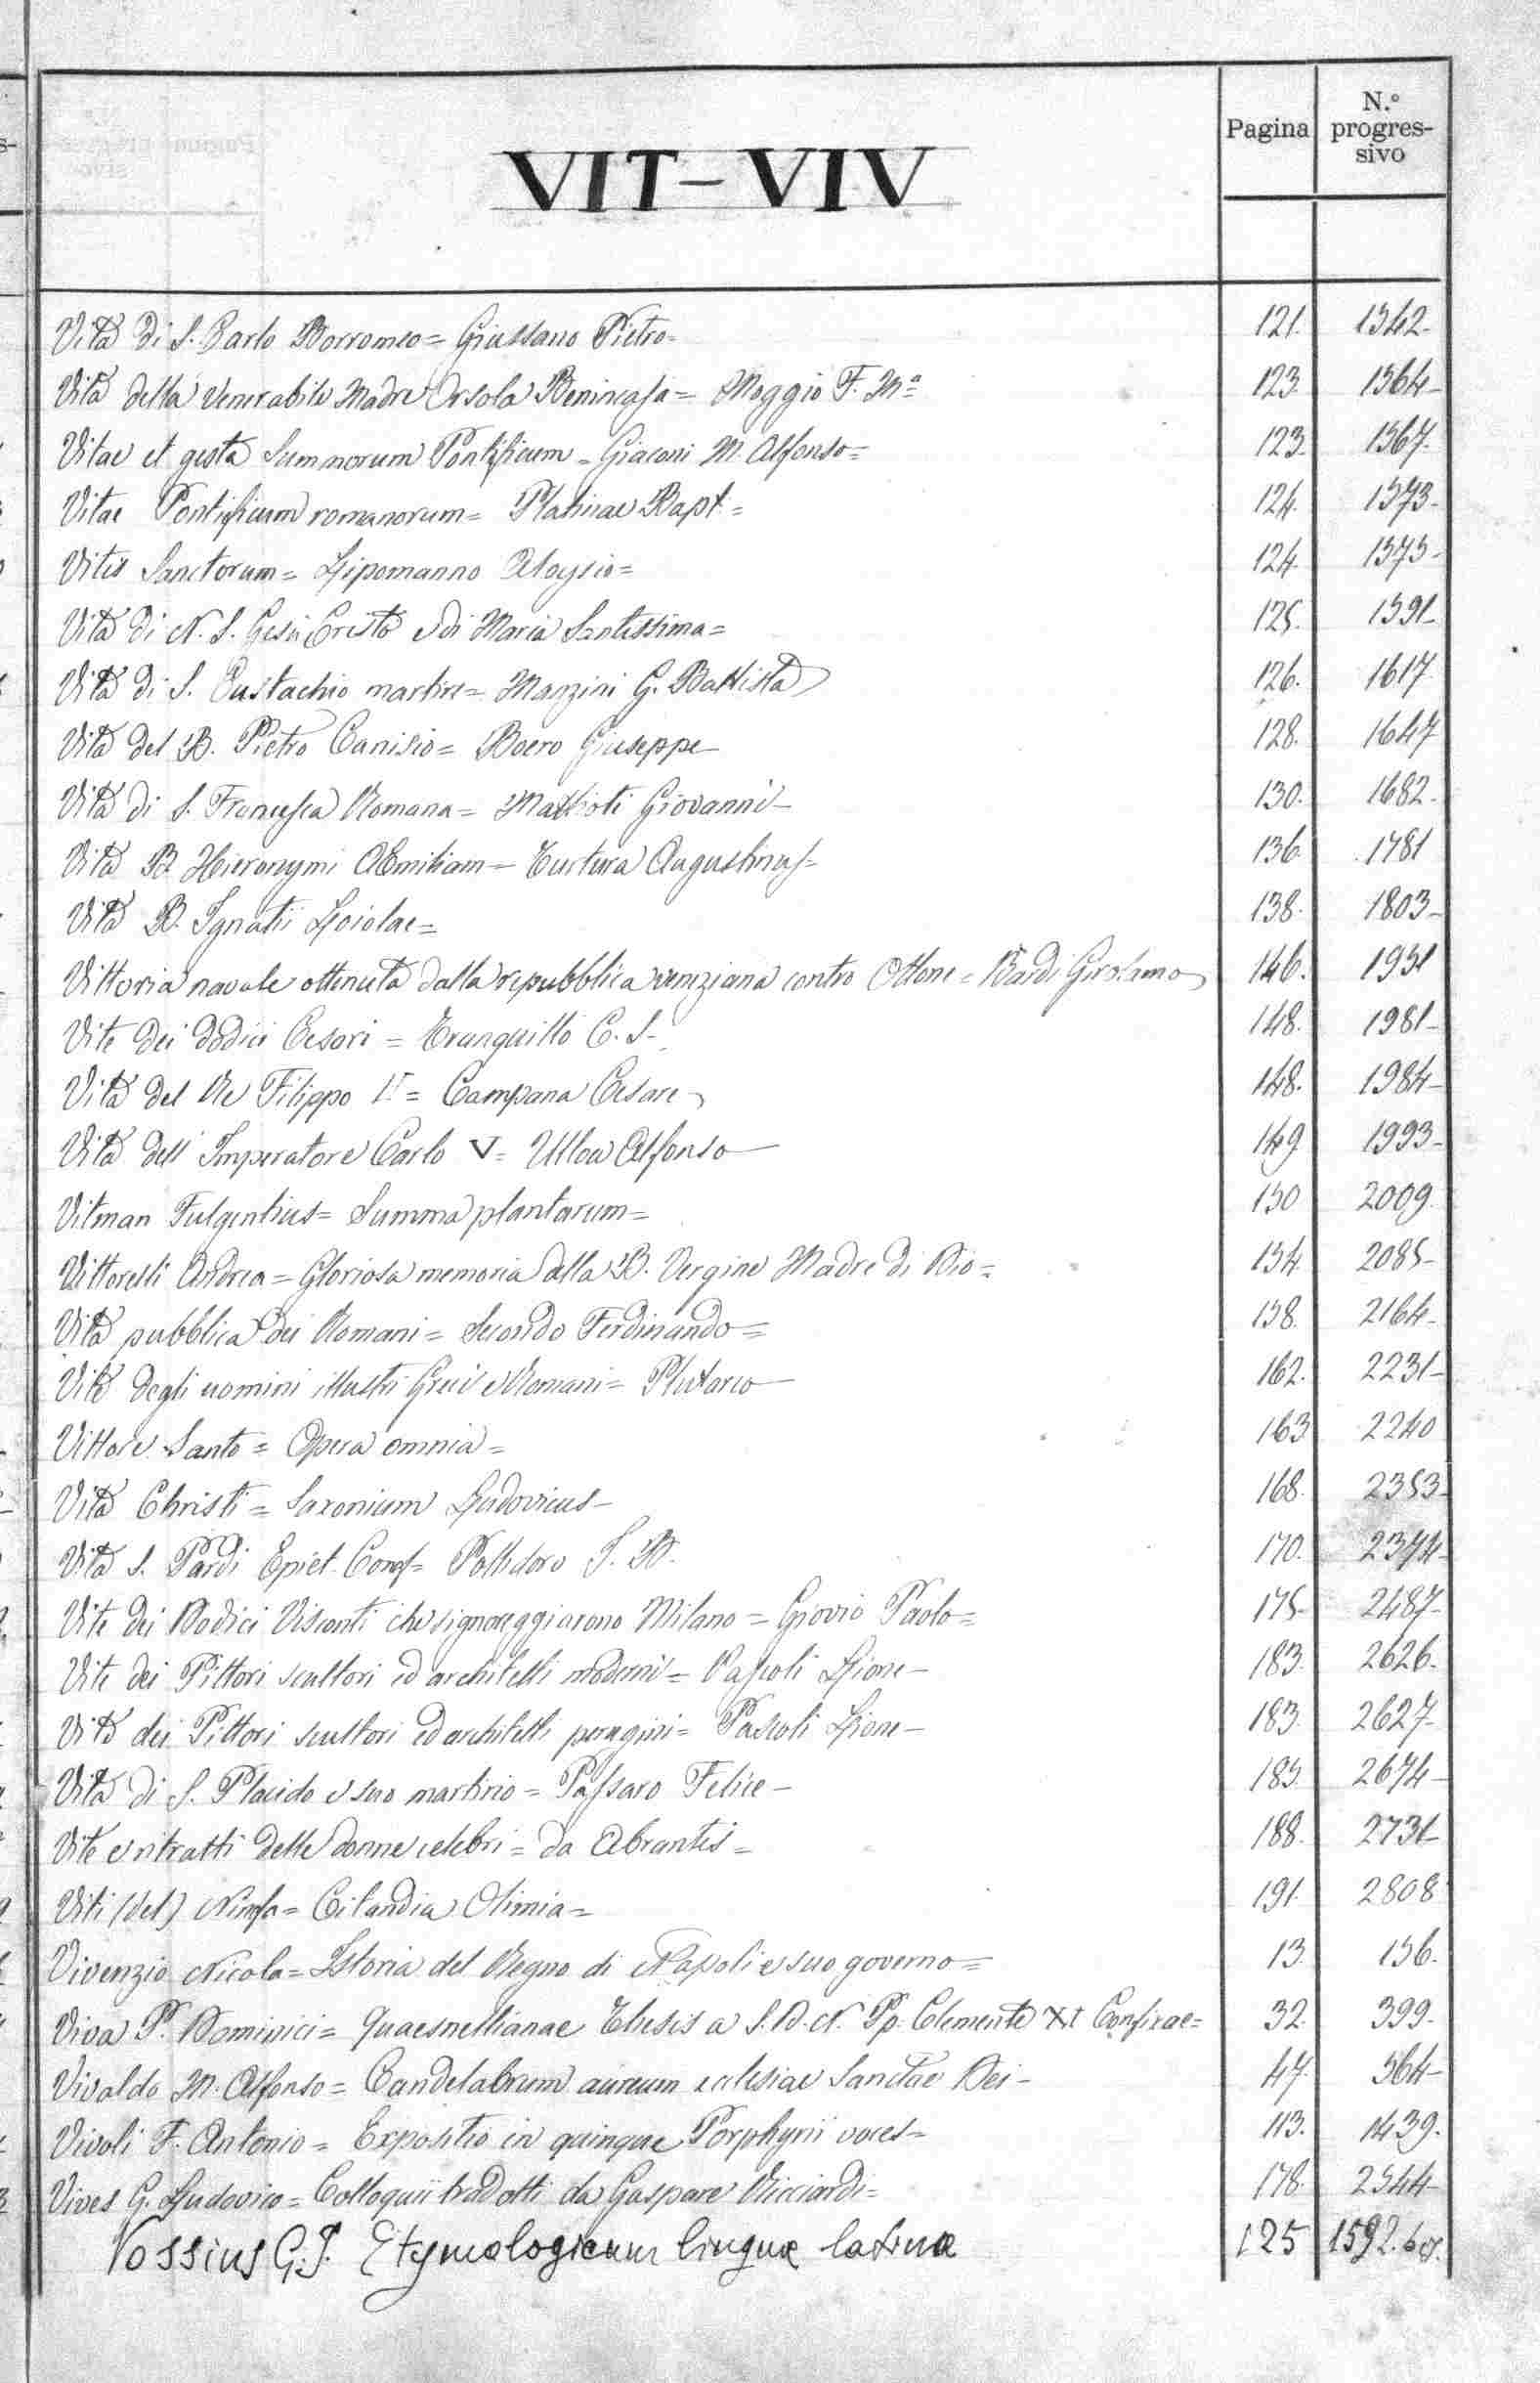 Pagina
N.º progressivo
VIT-VIV
Vita di S. Carlo Borromeo= Giussano Pietro- 121. 1542-
Vita della Venerabile Madre Orsola Benincasa= Maggio F. Mª 123. 1564-
Vitae et gesta Summorum Pontificum - Giaconi M. Alfonso= 123. 1567.
Vitae Pontificum romanorum= Platinae Bapt.= 124. 1573-
Vitis Sanctorum= Lipomanno Aloysio= 124. 1575-
Vita di N. S. Gesù Cristo e di Maria Santissima= 125. 1591-
Vita di S. Eustachio martire= Manzini G. Battista 126. 1617
Vita del B. Pietro Canisio= Boero Giuseppe 128. 1647
Vita di S. Francesca Romana= Mattioti Giovanni- 130. 1682.
Vita B. Hieronymi AEmiliani- Turtura Augustinus- 136. 1781
Vita B. Ignatii Loiolae= 138. 1803-
Vittoria navale ottenuta dalla repubblica veneziana contro Ottone= Bardi Girolamo 146. 1951
Vite dei dodici Cesari= Tranquillo C. S- 148. 1981-
Vita del Re Filippo II= Campana Cesare 148. 1984-
Vita dell'Imperatore Carlo V= Ulloa Alfonso 149 1993-
Vitman Fulgentius= Summa plantarum= 150 2009
Vittorelli Andrea= Gloriosa memoria della B. Vergine Madre di Dio= 154. 2085-
Vita pubblica dei Romani= Secondo Ferdinando= 158. 2164-
Vite degli uomini illustri Greci e Romani= Plutarco 162. 2231-
Vittore Santo= Opera omnia= 163 2240
Vita Christi= Saxonium Ludovicus- 168. 2353-
Vita S. Pardi Epict. Conf= Pollidoro J. B. 170. 2374-
Vite dei Dodici Visconti che signoreggiarono Milano= Giovio Paolo= 175- 2487-
Vite dei Pittori scultori ed architetti moderni= Pascoli Lione- 183. 2626.
Vite dei Pittori scultori ed architetti perugini= Pascoli Lione- 183. 2627-
Vita di S. Placido e suo martirio= Passaro Felice- 185. 2674-
Vite e ritratti delle donne celebri= da Abrantes= 188. 2731-
Viti (del) Ninfa= Cilandia Olimia= 191. 2808
Vivenzio Nicola= Istoria del Regno di Napoli e suo governo= 13. 156.
Viva P. Dominici= Quaesnellianae Thesis a S. D. N. Pp. Clemente XI Confixae= 32. 399-
Vivaldo M. Alfonso= Candelabrum aureum ecclesiae Sanctae Dei- 47. 564-
Vivoli F. Antonio= Expositio in quinque Porphyrii voces= 113. 1439.
Vives G. Ludovico= Colloquii tradotti da Gaspare Ricciardi= 178. 2544-
Vossius G.J. Etymologicum linguæ latinæ 125 1592.bis.